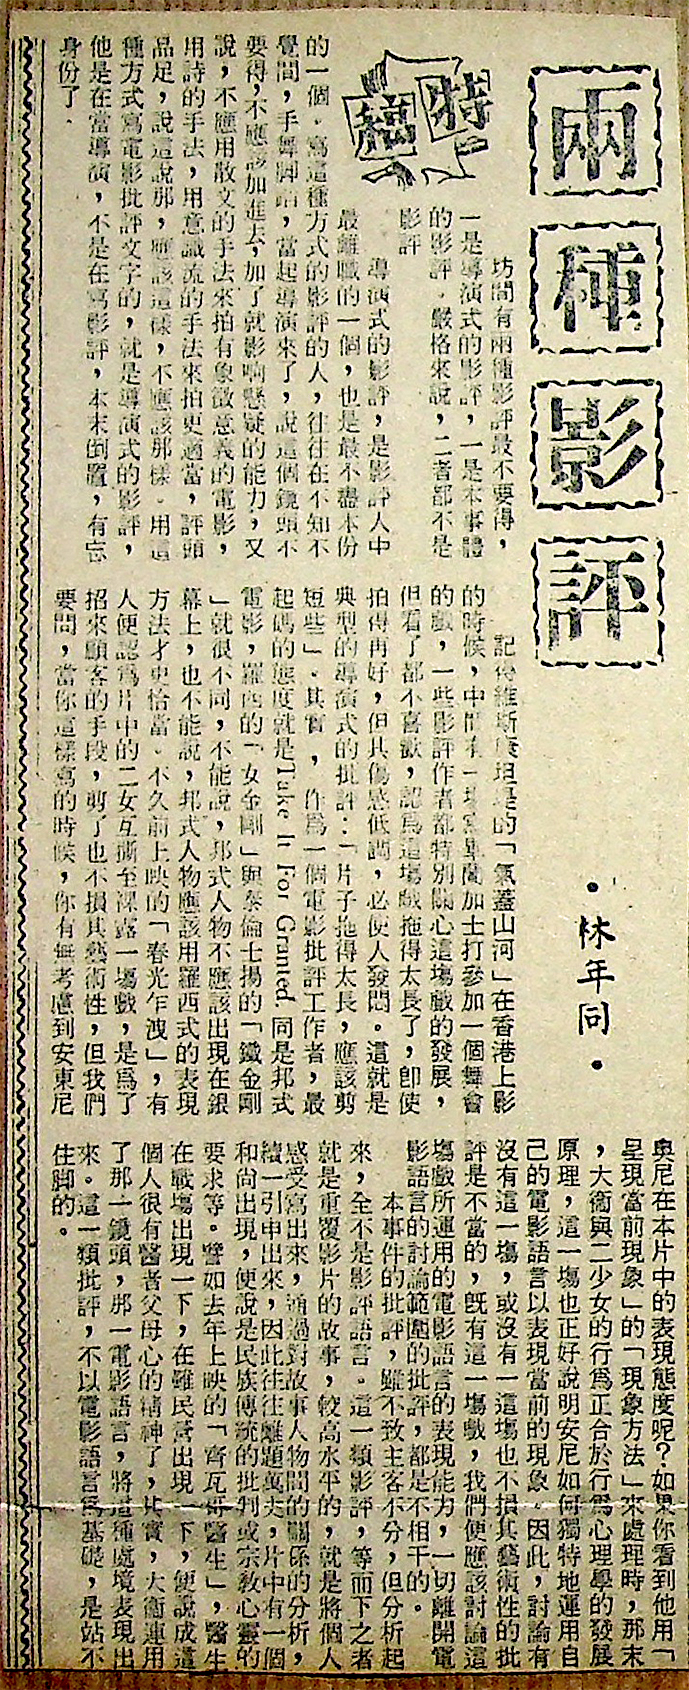 兩種影評
特稿
・林年同・
坊間有兩種影評最不要得,
一是導演式的影評,一是本事體
的影評。嚴格來說,二者都不是
影評
導演式的影評,是影評人中
最離職的一個,也是最不盡本份
的一個。寫這種方式的影評的人,往往在不知不
覺間,手舞脚蹈,當起導演來了,說這個鏡頭不
要得,不應該加進去,加了就影响懸疑的能力,又
說,不應用散文的手法來拍有象徵意義的電影,
用詩的手法,用意識流的手法來拍更適當,評頭
品足,說這說那,應該這樣,不應該那樣。用這
種方式寫電影批評文字的,就是導演式的影評,
他是在當導演,不是在寫影評,本末倒置,有忘
身份了.
記得維斯康坦是的「氣蓋山河」在香港上影
的時候,中間有一場寫畢蘭加士打參加一個舞會
的戲,一些影評作者都特別關心這場戲的發展,
但看了都不喜歡,認爲這場戲拖得太長了,卽使
拍得再好,但其傷感低調,必使人發悶。這就是
典型的導演式的批評:「片子拖得太長,應該剪
短些」。其實,作爲一個電影批評工作者,最
起碼的態度就是Take It For Granted 同是邦式
電影,羅西的「女金剛」與泰倫士揚的「鐵金剛
」就很不同,不能說,邦式人物不應該出現在銀
幕上,也不能說,邦式人物應該用羅西式的表現
方法才更恰當。不久前上映的「春光乍洩」,有
人便認爲片中的二女互撕至裸露一塲戲,是爲了
招來顧客的手段,剪了也不損其藝術性,但我們
要問,當你這樣寫的時候,你有無考慮到安東尼
奧尼在本片中的表現態度呢?如果你看到他用「
呈現當前現象」的「現象方法」來處理時,那末
,大衞與二少女的行爲正合於行爲心理學的發展
原理,這一塲也正好說明安尼如何獨特地運用自
己的電影語言以表現當前的現象。因此,討論有
沒有這一塲,或沒有一這塲也不損其藝術性的批
評是不當的,旣有這一塲戲,我們便應該討論這
塲戲所運用的電影語言的表現能力,一切離開電
影語言的討論範圍的批評,都是不相干的。
本事件的批評,雖不致主客不分,但分析起
來,全不是影評語言。這一類影評,等而下之者
就是重覆影片的故事,較高水平的,就是將個人
感受寫出來,通過對故事人物間的關係的分析,
續一引申出來,因此往往離題萬丈,片中有一個
和尚出現,便說是民族傳統的批判或宗敎心靈的
要求等。譬如去年上映的「齊瓦哥醫生」,醫生
在戰塲出現一下,在難民營出現一下,便說成這
個人很有醫者父母心的精神了,其實,大衞連用
了那一鏡頭,那一電影語言,將這種處境表現出
來。這一類批評,不以電影語言爲基礎,是站不
住脚的。